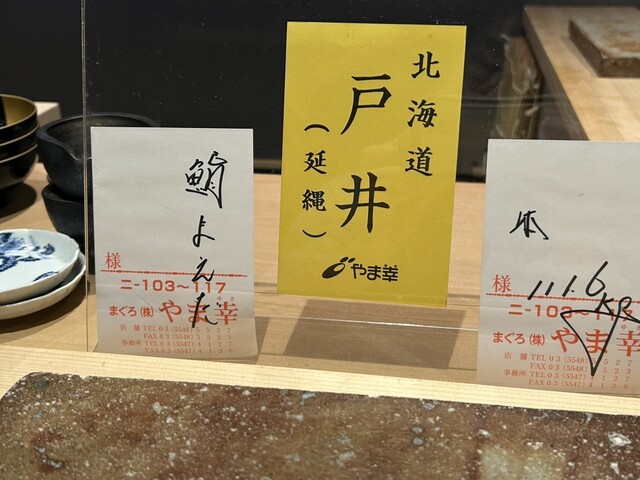 鮨
よろえだ
様
ニ-103〜117
まぐろ(株)やま幸
店舗 TEL 03(5548)
FAX 03(5548)
事務所 TEL 03(5547)
FAX 03(5547)
北海道
戸井
(延縄)
やま幸
本
111.6
様
まぐろ(株)やま幸
店舗 TEL 03(5548)
FAX 03(5548)
事務所 TEL 03(5547)
FAX 03(5547)